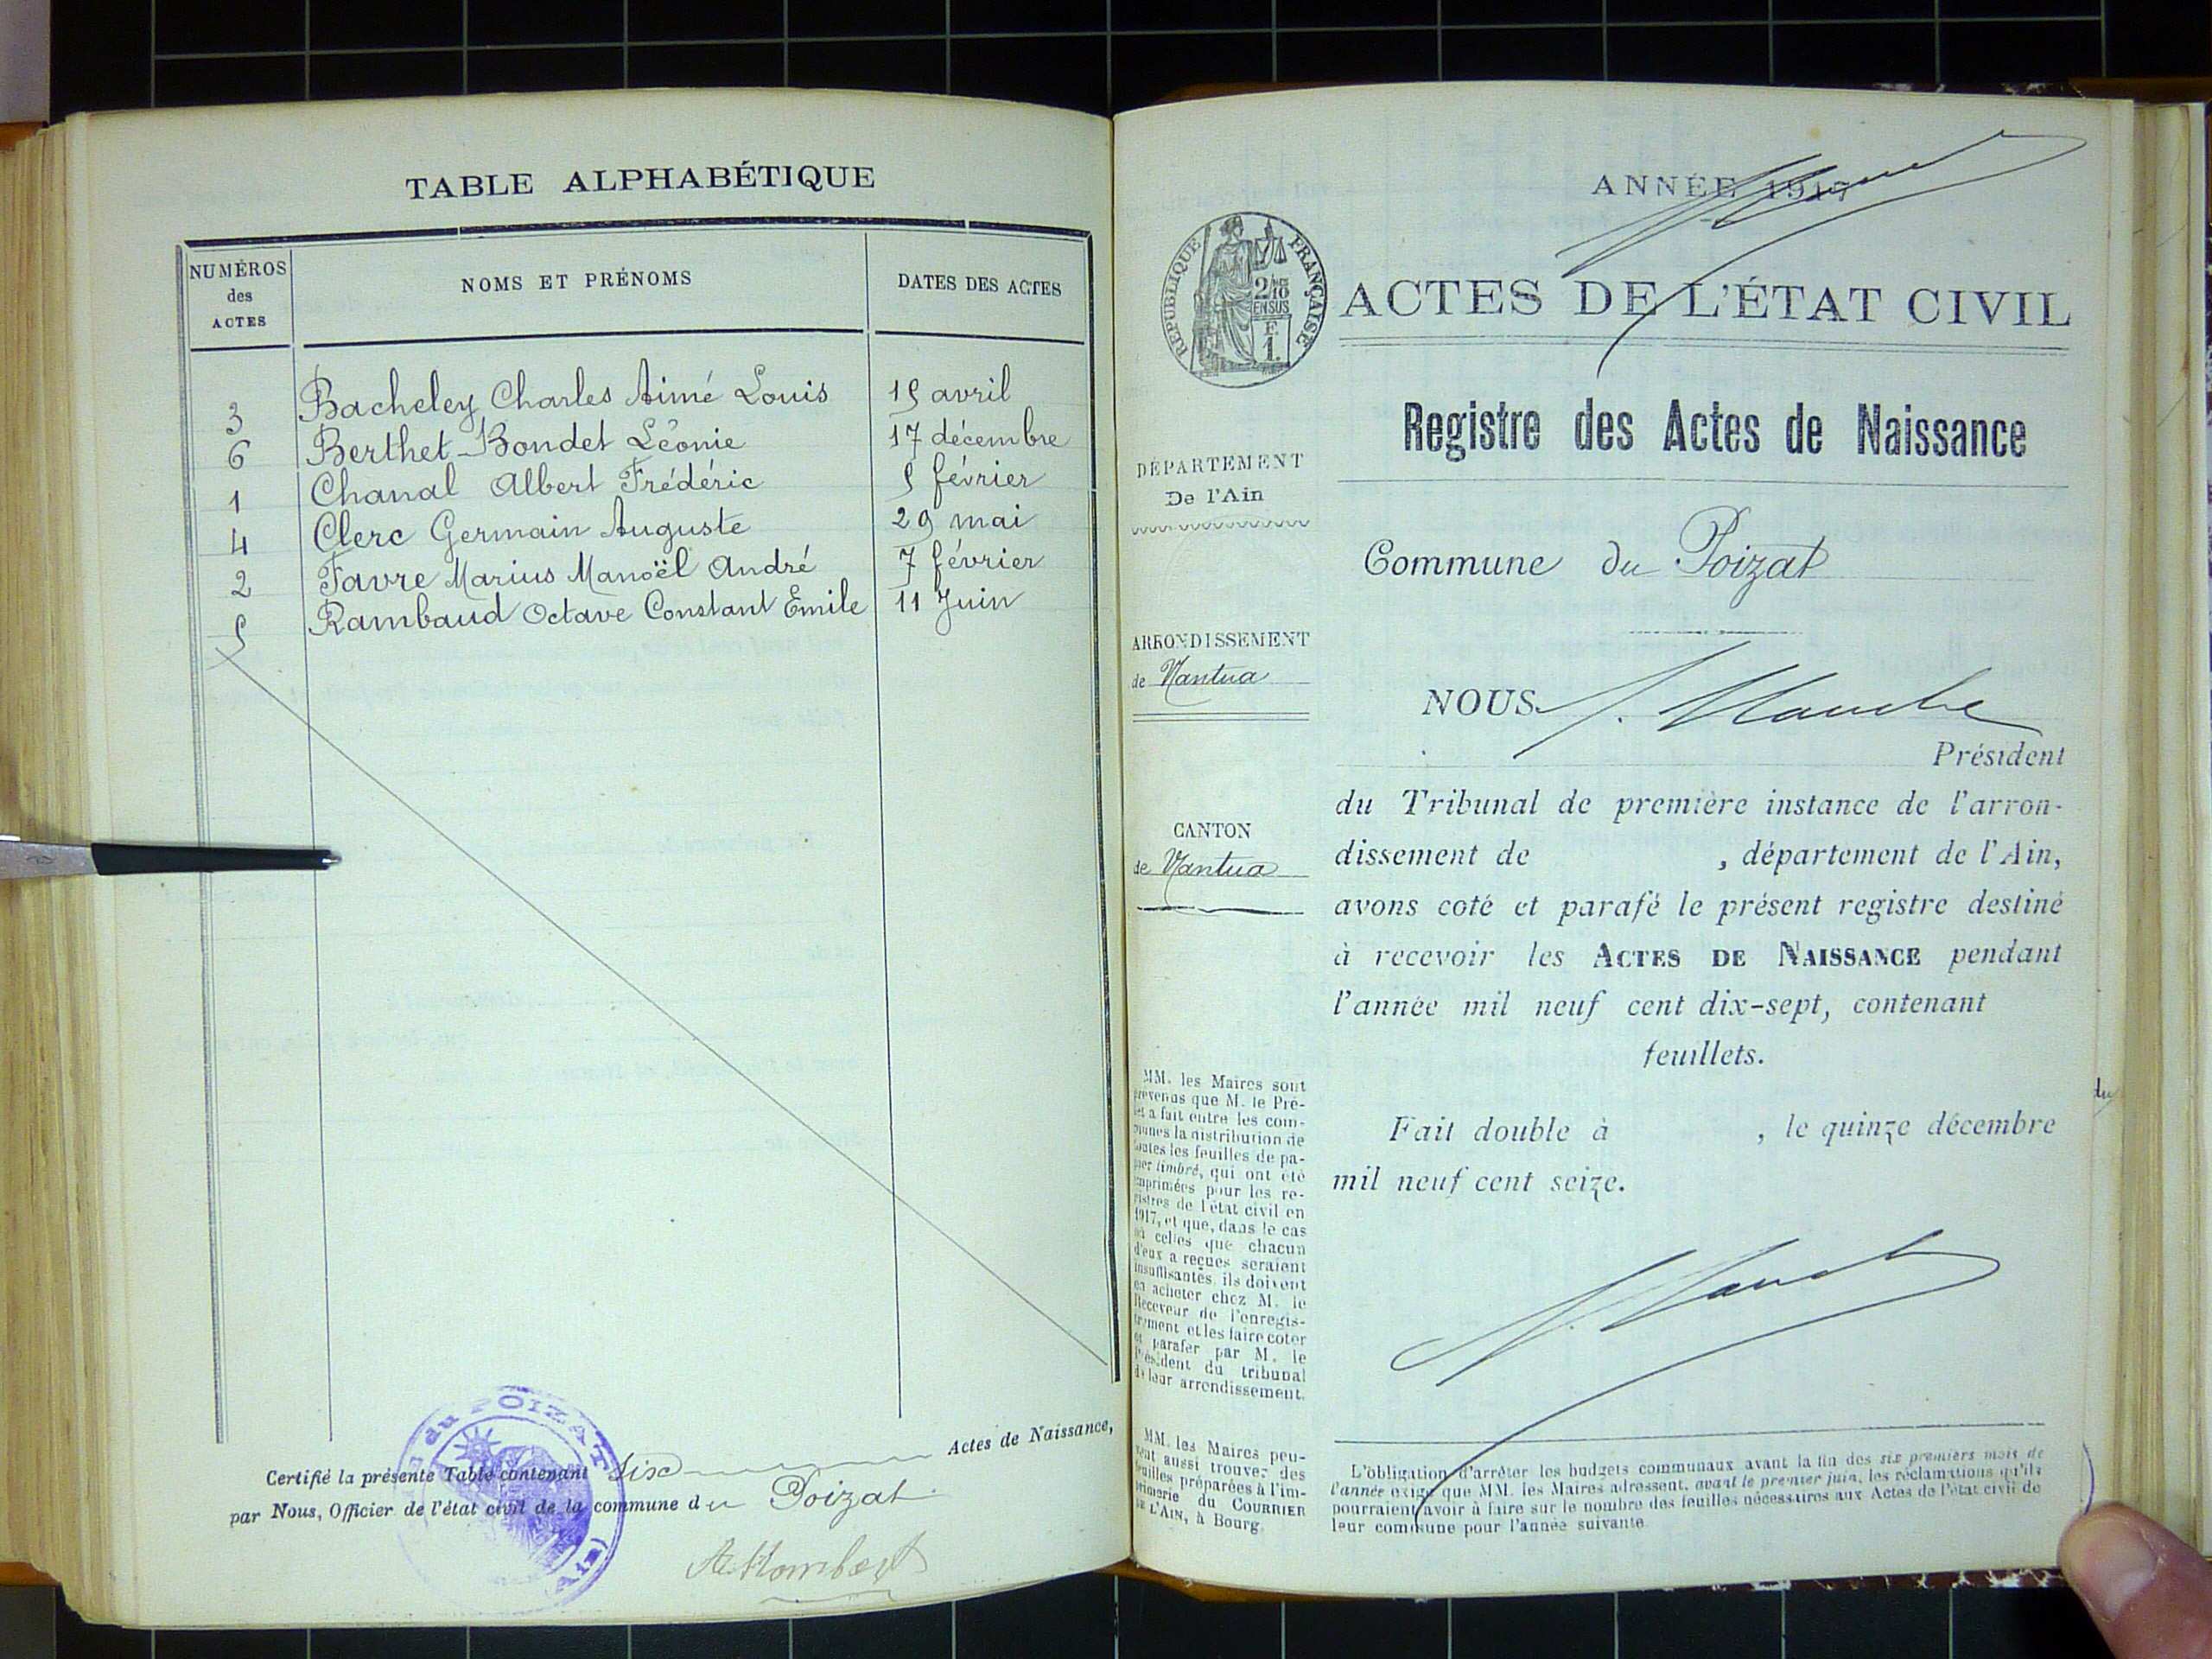 TABLE ALPHABÉTIQUE
NUMÉROS
des
ACTES
NOMS ET PRÉNOMS
DATES DES ACTES
3 Bacheley Charles Aimé Louis 15 avril
6 Berthet-Bondet Léonie 17 décembre
1 Chanal Albert Frédéric 5 février
4 Clerc Germain Auguste 29 mai
2 Favre Marius Manoël André 7 février
5 Rambaud Octave Constant Emile 11 Juin
Certifié la présente Table contenant Six Actes de Naissance,
par Nous, Officier de l'état civil de la commune du Poizat
du POIZAT
ANNÉE 1917
RÉPUBLIQUE FRANÇAISE
2/10
EN SUS
F.
1.
ACTES DE L'ÉTAT CIVIL
Registre des Actes de Naissance
DÉPARTEMENT
De l'Ain
Commune du Poizat
ARRONDISSEMENT
de Nantua
CANTON
de Nantua
NOUS
Président
du Tribunal de première instance de l'arron-
dissement de , département de l'Ain,
avons coté et parafé le présent registre destiné
à recevoir les ACTES DE NAISSANCE pendant
l'année mil neuf cent dix-sept, contenant
feuillets.
Fait double à , le quinze décembre
mil neuf cent seize.
MM. les Maires sont
prévenus que M. le Pré-
fet a fait entre les com-
munes la distribution de
toutes les feuilles de pa-
pier timbré, qui ont été
imprimées pour les re-
gistres de l'état civil en
1917, et que, dans le cas
où celles que chacun
d'eux a reçues seraient
insuffisantes, ils doivent
en acheter chez M. le
Receveur de l'enregis-
trement et les faire coter
et parafer par M. le
Président du tribunal
de leur arrondissement.
MM. les Maires peu-
vent aussi trouver des
feuilles préparées à l'im-
primerie du COURRIER
DE L'AIN, à Bourg.
L'obligation d'arrêter les budgets communaux avant la fin des six premiers mois de
l'année exige que MM. les Maires adressent, avant le premier juin, les réclamations qu'ils
pourraient avoir à faire sur le nombre des feuilles nécessaires aux Actes de l'état civil de
leur commune pour l'année suivante.